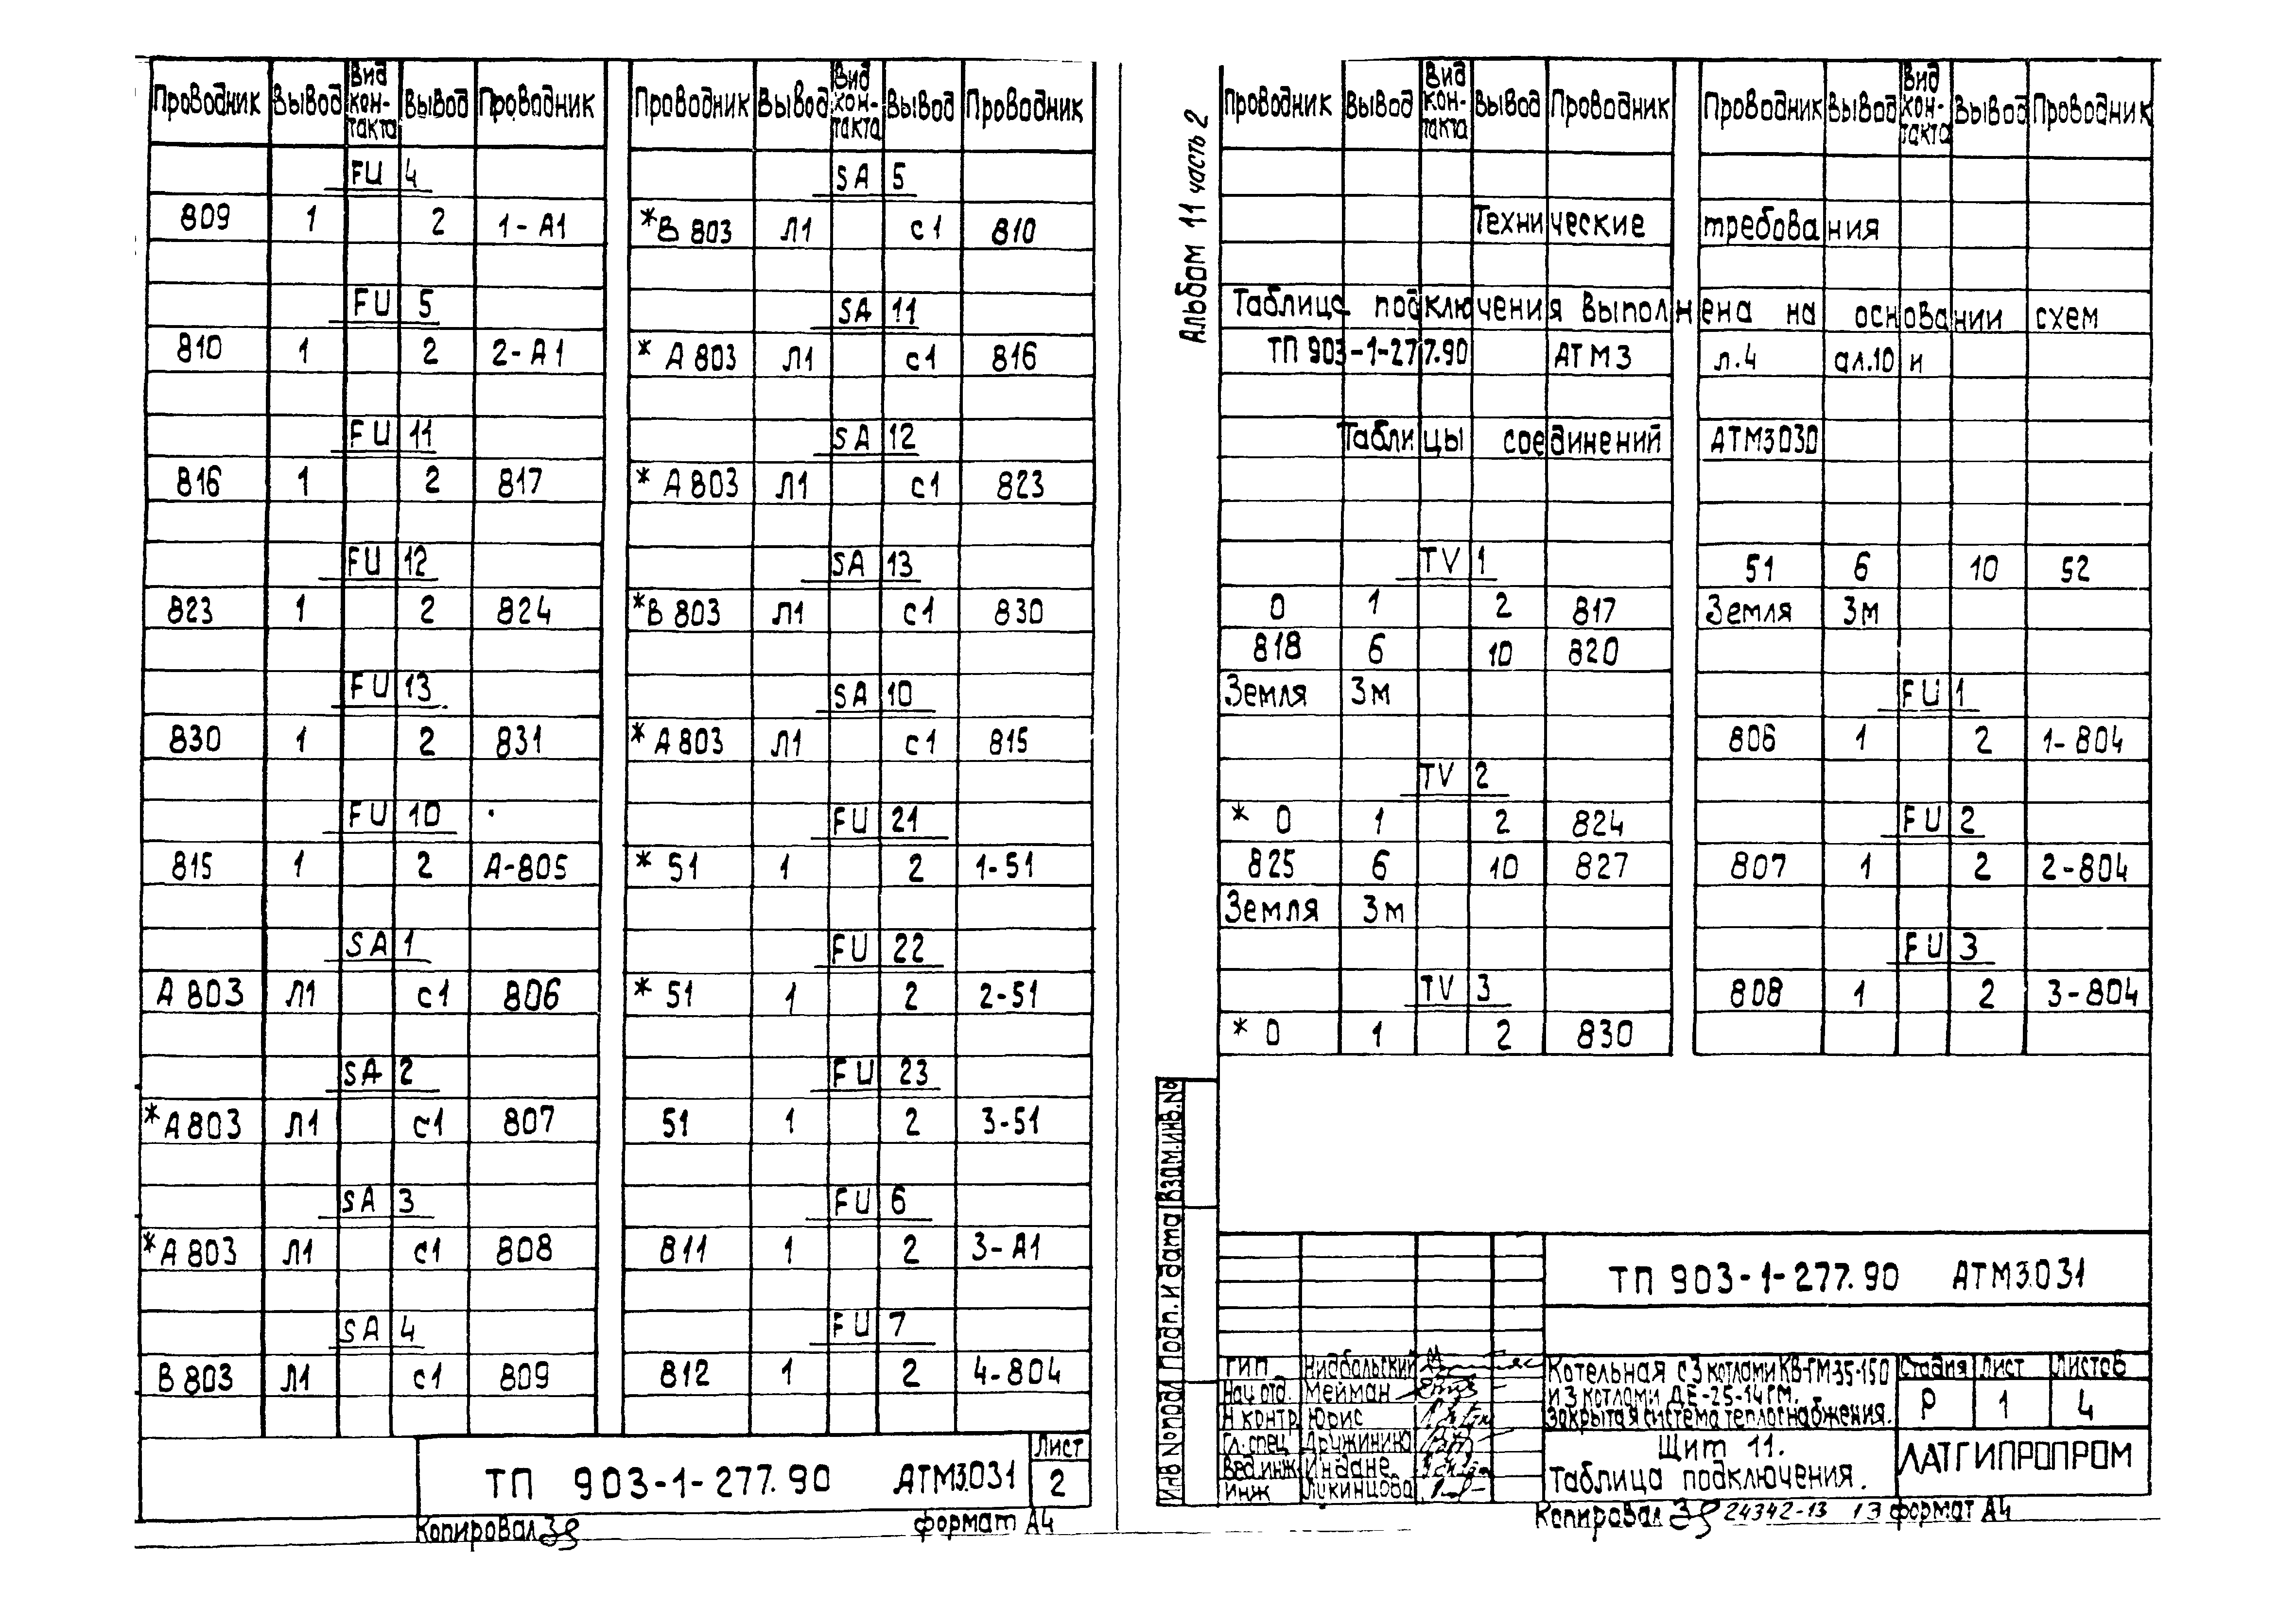 Проводник Вывод Вид кон-такта Вывод Проводник
FU 4
809 1 2 1-А1
FU 5
810 1 2 2-А1
FU 11
816 1 2 817
FU 12
823 1 2 824
FU 13
830 1 2 831
FU 10
815 1 2 А-805
SA 1
А 803 Л1 с1 806
SA 2
*А 803 Л1 с1 807
SA 3
*А 803 Л1 с1 808
SA 4
В 803 Л1 с1 809
Проводник Вывод Вид кон-такта Вывод Проводник
SA 5
*В 803 Л1 с1 810
SA 11
* А 803 Л1 с1 816
SA 12
* А 803 Л1 с1 823
SA 13
*В 803 Л1 с1 830
SA 10
* А 803 Л1 с1 815
FU 21
* 51 1 2 1-51
FU 22
* 51 1 2 2-51
FU 23
51 1 2 3-51
FU 6
811 1 2 3-А1
FU 7
812 1 2 4-804
ТП 903-1-277.90 АТМ3.031
Лист
2
Копировал
формат А4
Альбом 11 часть 2
Проводник Вывод Вид кон-такта Вывод Проводник
Проводник Вывод Вид кон-такта Вывод Проводник
Технические требования
Таблица подключения выполнена на основании схем
ТП 903-1-277.90 АТМ3 л.4 ал.10 и
Таблицы соединений АТМ3030
TV 1
0 1 2 817
818 6 10 820
Земля Зм
TV 2
* 0 1 2 824
825 6 10 827
Земля Зм
TV 3
* 0 1 2 830
51 6 10 52
Земля Зм
FU 1
806 1 2 1-804
FU 2
807 1 2 2-804
FU 3
808 1 2 3-804
Взам.инв.№
Подп. и дата
Инв №подл
ТП 903-1-277.90 АТМ3.031
ГИП Нидбальский
Нач отд. Мейман
Н контр Юрис
Гл. спец Дружинина
Вед.инж Индане
инж Лукинцова
Котельная с 3 котлами КВ-ГМ-35-150
и 3 котлами ДЕ-25-14ГМ.
Закрытая система теплоснабжения.
Стадия Лист Листов
Р 1 4
Щит 11.
Таблица подключения.
ЛАТГИПРОПРОМ
Копировал 24342-13 13 формат А4